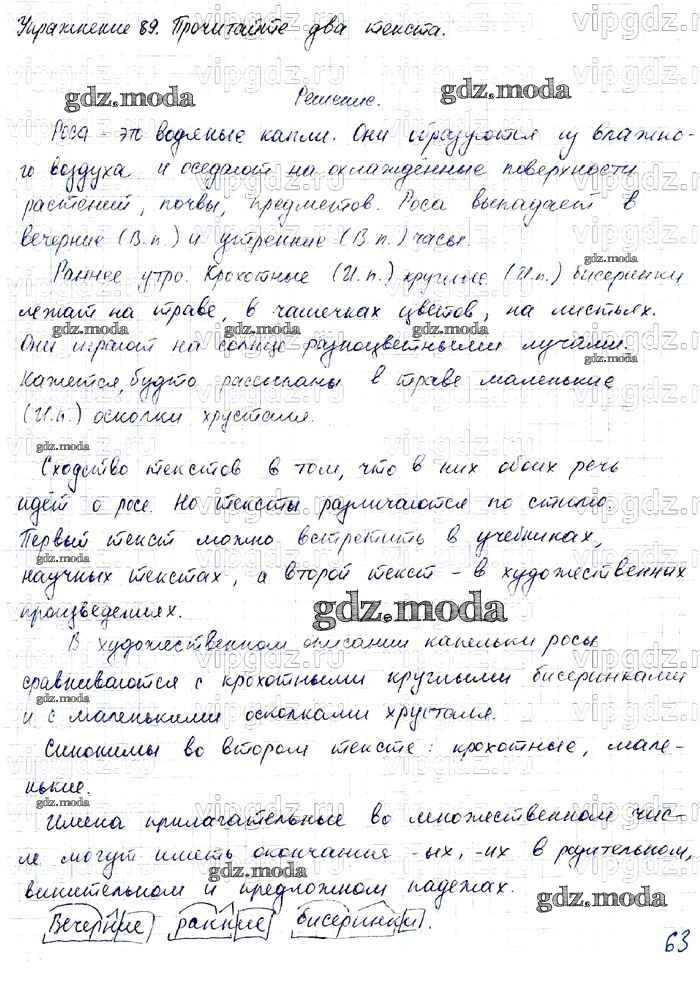 Упражнение 89. Прочитайте два текста.
gdz.moda
gdz.moda
Решение.
Роса - это водяные капли. Они образуются из влажно-
го воздуха и оседают на охлаждённые поверхности
растений, почвы, предметов. Роса выпадает в
вечерние (В.п.) и утренние (В.п.) часы.
gdz.moda
Раннее утро. Крохотные (И.п.) круглые (И.п.) бисеринки
лежат на траве, в чашечках цветов, на листьях.
gdz.moda
Они играют на солнце разноцветными лучами.
gdz.moda
Кажется, будто рассыпаны в траве маленькие
(И.п.) осколки хрусталя.
gdz.moda
Сходство текстов в том, что в них обоих речь
идёт о росе. Но тексты различаются по стилю.
Первый текст можно встретить в учебниках,
gdz.moda
научных текстах, а второй текст - в художественных
произведениях.
gdz.moda
В художественном описании капельки росы
сравниваются с крохотными круглыми бисеринками
gdz.moda
и с маленькими осколками хрусталя.
Синонимы во втором тексте: крохотные, мале-
нькие.
gdz.moda
Имена прилагательные во множественном чис-
ле могут иметь окончания -ых, -их в родительном,
винительном и предложном падежах.
gdz.moda
gdz.moda
Вечерние, ранние, бисеринки.
63
vipgdz.ru